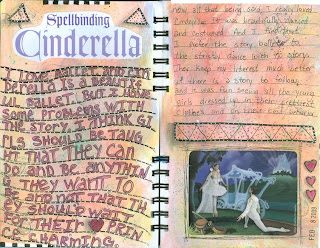 Spellbinding
Cinderella
I LOVE BALLET AND CIN
DERELLA IS A BEAUTIF
UL BALLET. BUT I HAVE
SOME PROBLEMS WITH
THE STORY. I THINK GI
RLS SHOULD BE TAUG
HT THAT THEY CAN
DO AND BE ANYTHIN
G THEY WANT TO
BE AND NOT THAT TH
EY SHOULD WAIT
FOR THEIR PRIN
CE CHARMING.
now all that being said, I really loved
Cinderella. It was beautifully danced
and costumed. And I
I prefer the story ballets to
the strictly dance with no story.
They keep my interest much better
with a story to follow.
And it was fun seeing all the young
girls dressed up in their prettiest
clothes and on their best behavior.
FEB 8 2010